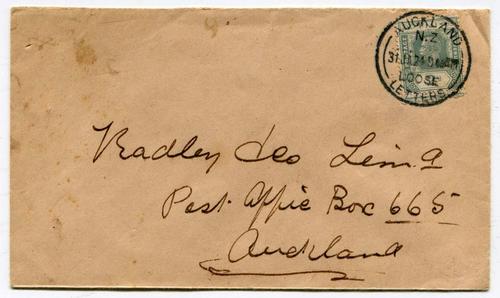 AUCKLAND
N.Z
LOOSE
LETTERS
Radley & Co Lim.d
Post Office Box 665
Auckland